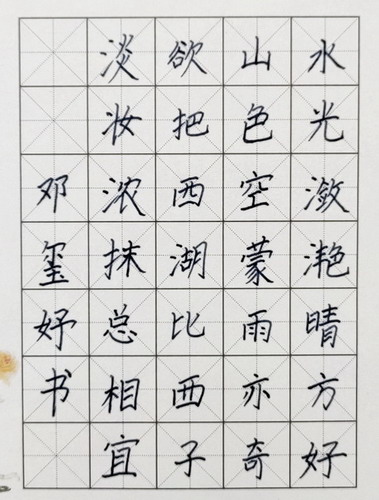 水光潋滟晴方好
山色空蒙雨亦奇
欲把西湖比西子
淡妆浓抹总相宜
邓玺妤书